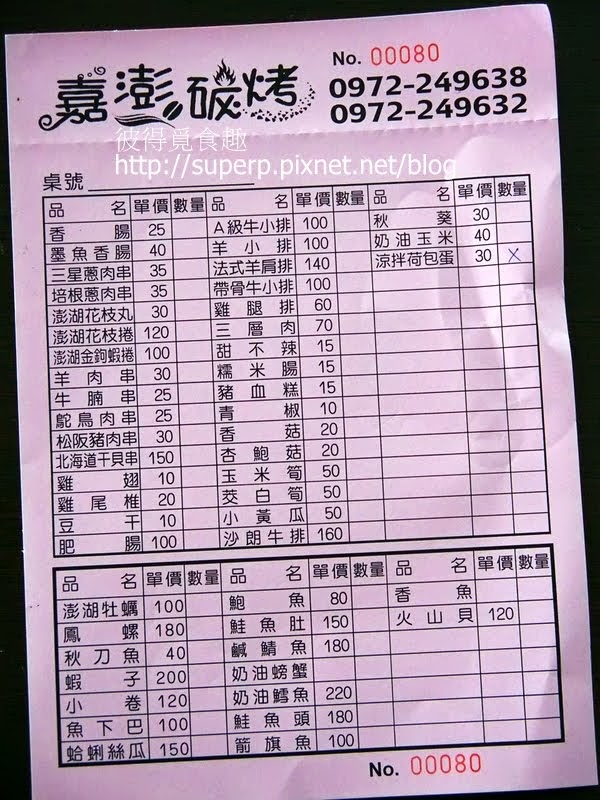 No. 00080
嘉澎碳烤
0972-249638
0972-249632
彼得覓食趣
http://superp.pixnet.net/blog
桌號
品名 單價 數量 品名 單價 數量 品名 單價 數量
香腸 25 A級牛小排 100 秋葵 30
墨魚香腸 40 羊小排 100 奶油玉米 40
三星蔥肉串 35 法式羊肩排 140 涼拌荷包蛋 30 X
培根蔥肉串 35 帶骨牛小排 100
澎湖花枝丸 30 雞腿排 60
澎湖花枝捲 120 三層肉 70
澎湖金鉤蝦捲 100 甜不辣 15
羊肉串 30 糯米腸 15
牛腩串 25 豬血糕 15
鴕鳥肉串 25 青椒 10
松阪豬肉串 30 香菇 20
北海道干貝串 150 杏鮑菇 20
雞翅 10 玉米筍 50
雞尾椎 20 茭白筍 50
豆干 10 小黃瓜 50
肥腸 100 沙朗牛排 160
品名 單價 數量 品名 單價 數量 品名 單價 數量
澎湖牡蠣 100 鮑魚 80 香魚
鳳螺 180 鮭魚肚 150 火山貝 120
秋刀魚 40 鹹鯖魚 180
蝦子 200 奶油螃蟹
小卷 120 奶油鱈魚 220
魚下巴 100 鮭魚頭 180
蛤蜊絲瓜 150 箭旗魚 100
No. 00080